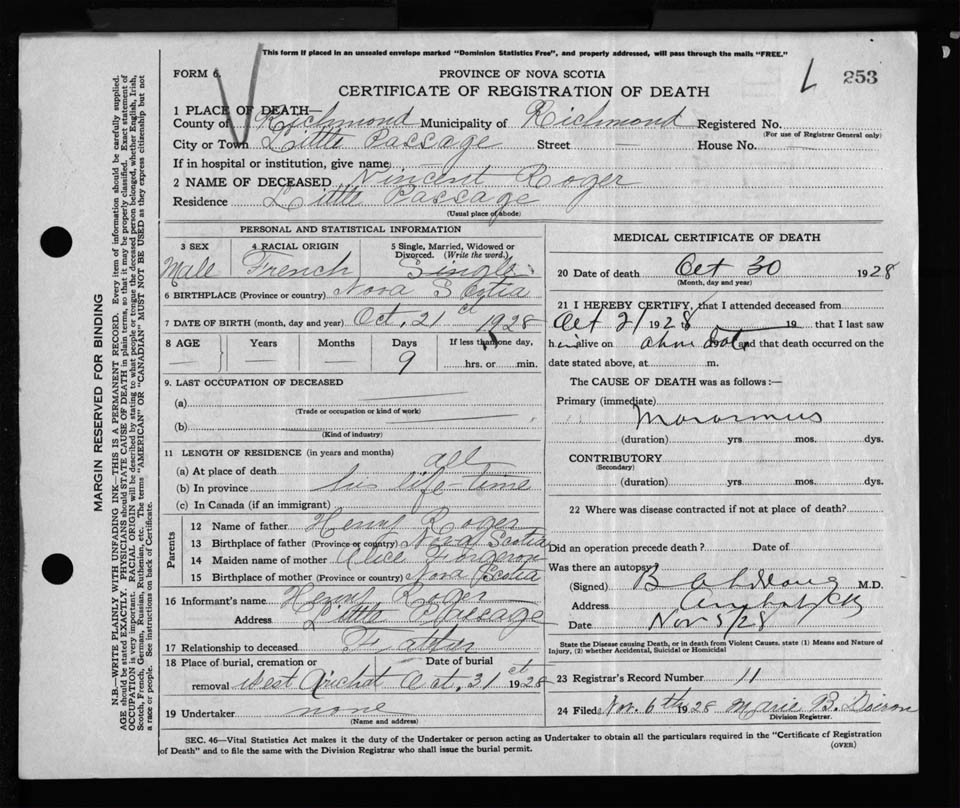 This form if placed in an unsealed envelope marked "Dominion Statistics Free", and properly addressed, will pass through the mails "FREE."
FORM 6.
PROVINCE OF NOVA SCOTIA
253
CERTIFICATE OF REGISTRATION OF DEATH
1 PLACE OF DEATH—
County of Richmond Municipality of Richmond Registered No.
(For use of Registrar General only)
City or Town Little Passage Street — House No. —
If in hospital or institution, give name —
2 NAME OF DECEASED Vincent Roger
Residence Little Passage
(Usual place of abode)
PERSONAL AND STATISTICAL INFORMATION
3 SEX 4 RACIAL ORIGIN 5 Single, Married, Widowed or Divorced. (Write the word.)
Male French Single
6 BIRTHPLACE (Province or country) Nova Scotia
7 DATE OF BIRTH (month, day and year) Oct. 21st 1928
8 AGE Years Months Days If less than one day,
— — 9 hrs. or min.
9. LAST OCCUPATION OF DECEASED
(a)
(Trade or occupation or kind of work)
(b)
(Kind of industry)
11 LENGTH OF RESIDENCE (in years and months)
(a) At place of death all
(b) In province his life-time
(c) In Canada (if an immigrant)
Parents
12 Name of father Henry Roger
13 Birthplace of father (Province or country) Nova Scotia
14 Maiden name of mother Alice Forgeron
15 Birthplace of mother (Province or country) Nova Scotia
16 Informant's name Henry Roger
Address Little Passage
17 Relationship to deceased Father
18 Place of burial, cremation or removal Date of burial
West Arichat Oct. 31st 1928
19 Undertaker none
(Name and address)
MEDICAL CERTIFICATE OF DEATH
20 Date of death Oct 30 1928
(Month, day and year)
21 I HEREBY CERTIFY, that I attended deceased from
Oct 21 1928 19 that I last saw
h alive on above date and that death occurred on the
date stated above, at m.
The CAUSE OF DEATH was as follows:—
Primary (immediate)
Marasmus
(duration) yrs. mos. dys.
CONTRIBUTORY
(Secondary)
(duration) yrs. mos. dys.
22 Where was disease contracted if not at place of death?
Did an operation precede death? Date of
Was there an autopsy
(Signed) M.D.
Address
Date Nov 5/28
State the Disease causing Death, or in death from Violent Causes, state (1) Means and Nature of
Injury, (2) whether Accidental, Suicidal or Homicidal
23 Registrar's Record Number 11
24 Filed Nov. 6th 1928 Marie B. Doiron
Division Registrar.
SEC. 46—Vital Statistics Act makes it the duty of the Undertaker or person acting as Undertaker to obtain all the particulars required in the "Certificate of Registration
of Death" and to file the same with the Division Registrar who shall issue the burial permit.
(OVER)
MARGIN RESERVED FOR BINDING
N.B.—WRITE PLAINLY WITH UNFADING INK—THIS IS A PERMANENT RECORD. Every item of information should be carefully supplied.
AGE should be stated EXACTLY. PHYSICIANS should STATE CAUSE OF DEATH in plain terms, so that it may be properly classified. Exact statement of
OCCUPATION is very important. RACIAL ORIGIN will be described by stating to what people or tongue the deceased person belonged, whether English, Irish,
Scotch, French, German, Russian, Ruthenian, etc. The terms "AMERICAN" OR "CANADIAN" MUST NOT BE USED as they express citizenship but not
a race or people. See instructions on back of Certificate.